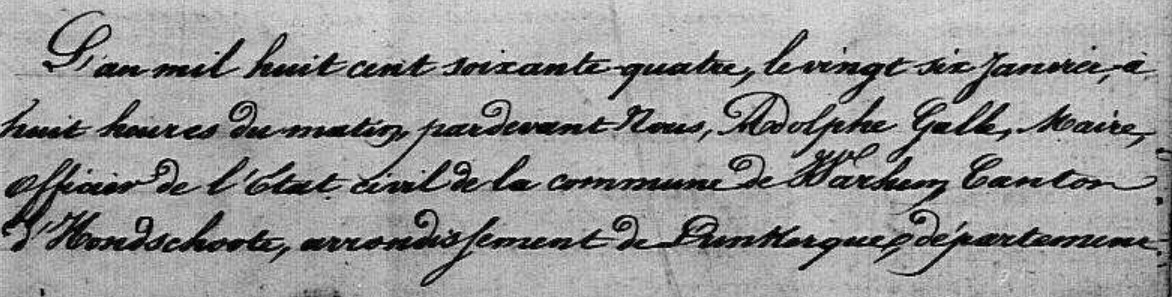 L'an mil huit cent soixante-quatre, le vingt six Janvier, à
huit heures du matin, pardevant Nous, Adolphe Galle, Maire,
officier de l'Etat civil de la commune de Warhem, Canton
d'Hondschoote, arrondissement de Dunkerque, département